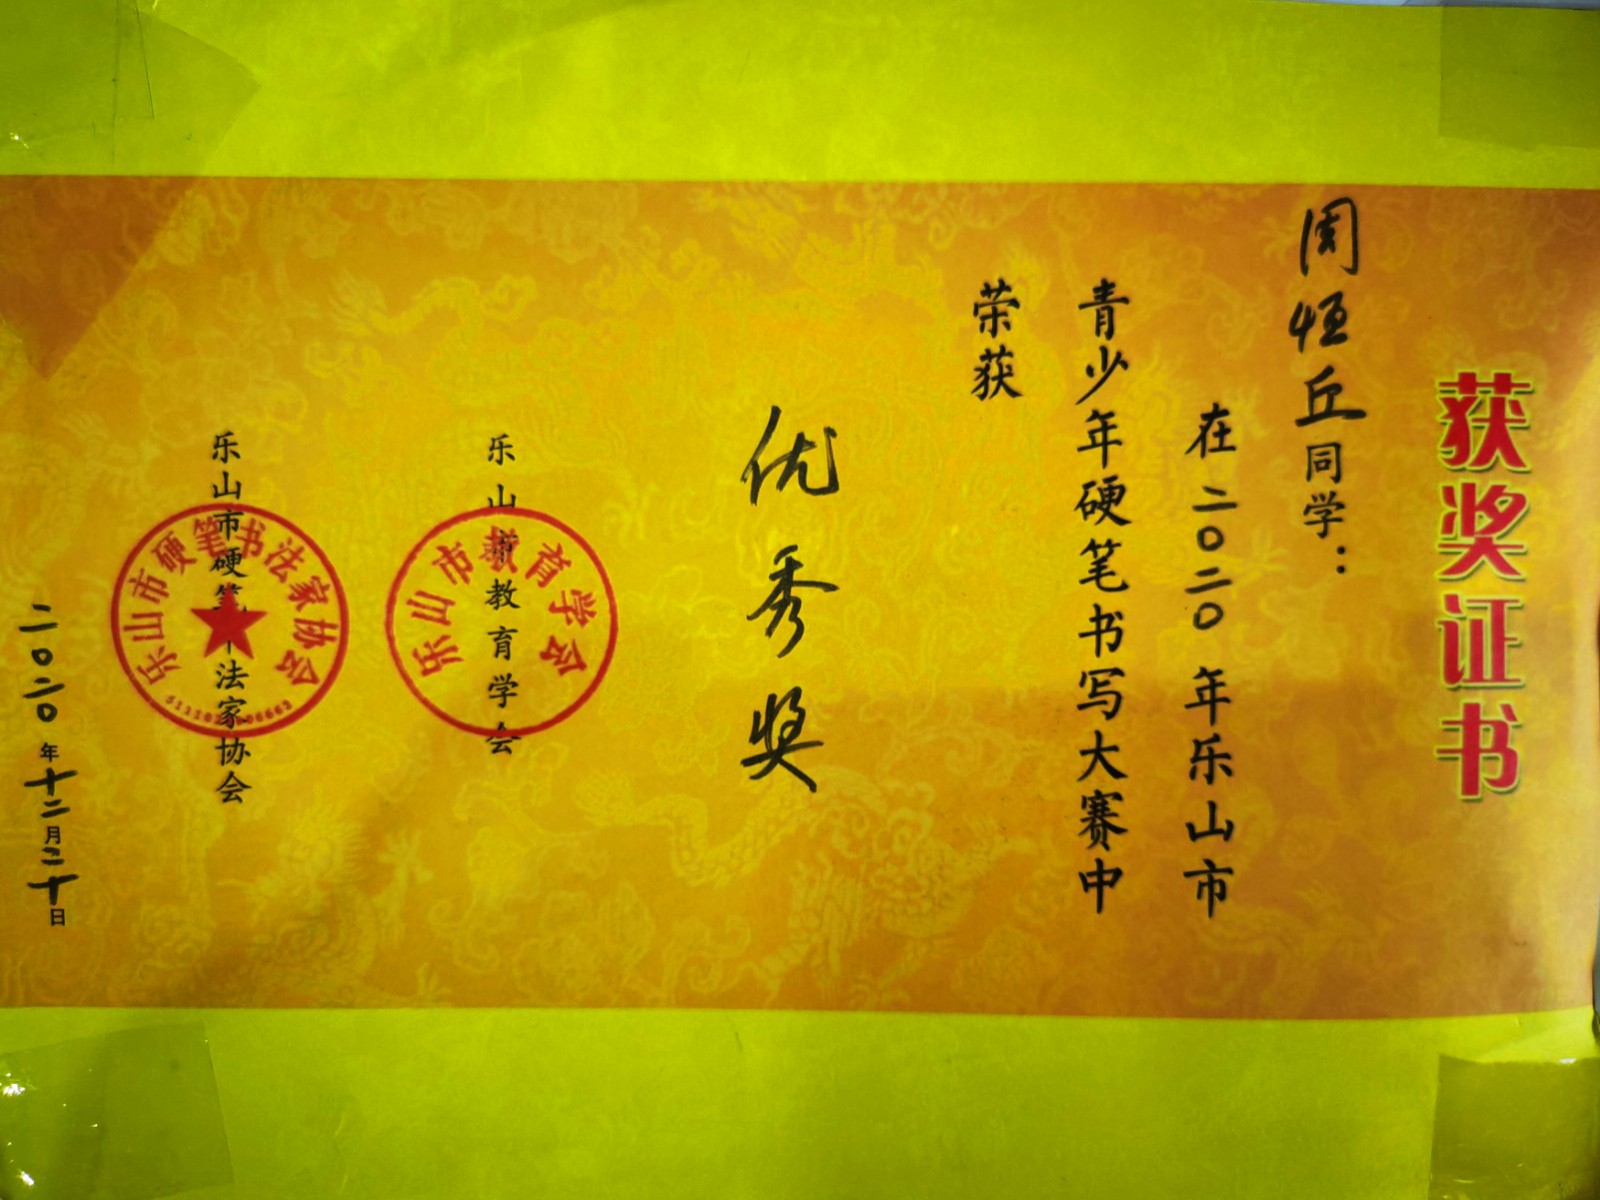 获奖证书
周恒丘同学：
在二〇二〇年乐山市
青少年硬笔书写大赛中
荣获
优秀奖
乐山市教育学会
乐山市教育学会
乐山市硬笔书法家协会
乐山市硬笔书法家协会
二〇二〇年十二月二十日